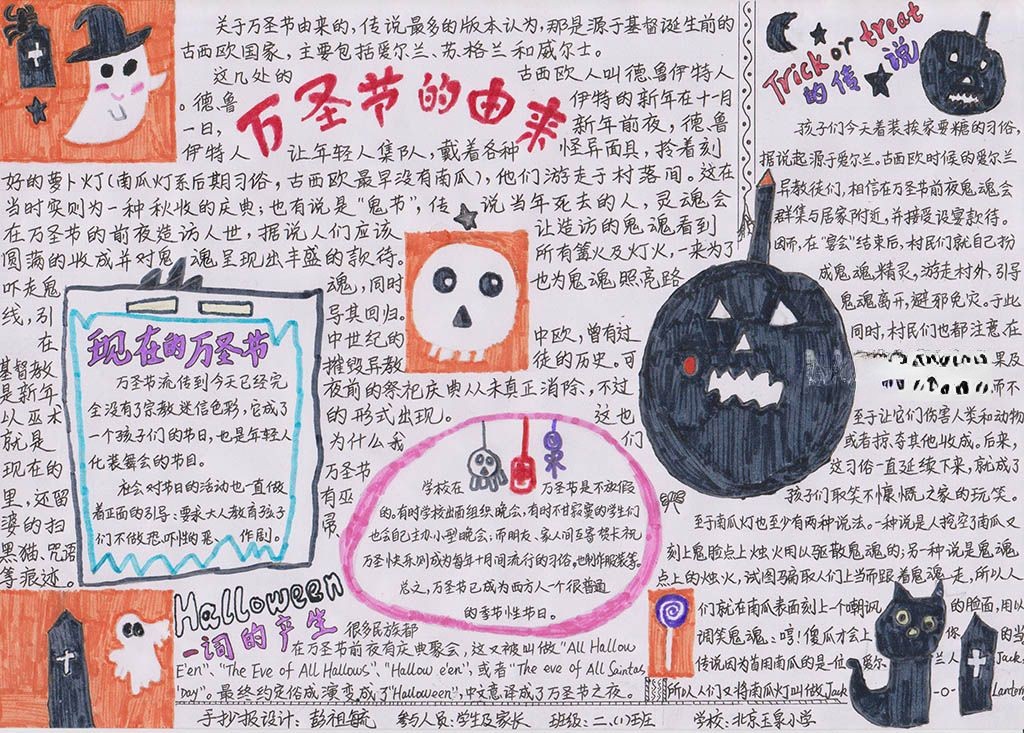 关于万圣节由来的,传说最多的版本认为,那是源于基督诞生前的
古西欧国家,主要包括爱尔兰、苏格兰和威尔士。
这几处的 古西欧人叫德鲁伊特人
。德鲁 伊特的新年在十一月
一日, 新年前夜,德鲁
万圣节的由来
伊特人 让年轻人集队,戴着各种 怪异面具,拎着刻
好的萝卜灯(南瓜灯系后期习俗,古西欧最早没有南瓜),他们游走于村落间。这在
当时实则为一种秋收的庆典;也有说是“鬼节”,传 说当年死去的人,灵魂会
在万圣节的前夜造访人世,据说人们应该 让造访的鬼魂看到
圆满的收成并对鬼 魂呈现出丰盛的款待。 所有篝火及灯火,一来为了
吓走鬼 魂,同时 也为鬼魂照亮路
线,引 导其回归。
在 中世纪的 中欧,曾有过
基督教 摧毁异教 徒的历史。可
是新年 夜前的祭祀庆典从未真正消除,不过
以巫术 的形式出现。 这也
就是 为什么我 们
现在的 万圣节
里,还留 有巫
婆的扫 帚、
黑猫、咒语
等痕迹。
现在的万圣节
万圣节流传到今天已经完
全没有了宗教迷信色彩,它成了
一个孩子们的节日,也是年轻人
化装舞会的节日。
社会对节日的活动也一直做
着正面的引导:要求大人教育孩子
们不做恐吓性的恶、作剧。
学校在 万圣节是不放假
的。有时学校出面组织晚会,有时不甘寂寞的学生们
也会自己主办小型晚会;而朋友、家人间互寄贺卡祝
万圣快乐则成为每年十月间流行的习俗。也制作服装等。
总之,万圣节已成为西方人一个很普通
的季节性节日。
Halloween
一词的产生
很多民族都
在万圣节前夜有庆典聚会,这又被叫做“All Hallow
E'en”、“The Eve of All Hallows”、“Hallow e'en”,或者“The eve of All Saintas'
Day”。最终约定俗成演变成了“Halloween”,中文意译成了万圣节之夜。
Trick or treat
的传说
孩子们今天着装挨家要糖的习俗,
据说起源于爱尔兰。古西欧时候的爱尔兰
异教徒们,相信在万圣节前夜鬼魂会
群集与居家附近,并接受设宴款待。
因而,在“宴会”结束后,村民们就自己扮
成鬼魂精灵,游走村外,引导
鬼魂离开,避邪免灾。于此
同时,村民们也都注意在
果及
而不
至于让它们伤害人类和动物
或者掠夺其他收成。后来,
这习俗一直延续下来,就成了
孩子们取笑不慷慨之家的玩笑。
至于南瓜灯也至少有两种说法。一种说是人挖空了南瓜又
刻上鬼脸点上烛火用以驱散鬼魂的;另一种说是鬼魂
点上的烛火,试图骗取人们上当而跟着鬼魂走,所以人
们就在南瓜表面刻上个嘲讽 的脸面,用以
调笑鬼魂:哼!傻瓜才会上 你 的当
传说因为首用南瓜的是一位 爱尔 兰人 Jack,
所以人们又将南瓜灯叫做Jack -o- Lantern
手抄报设计:彭祖毓 参与人员:学生及家长 班级:二、(1)班 学校:北京玉泉小学